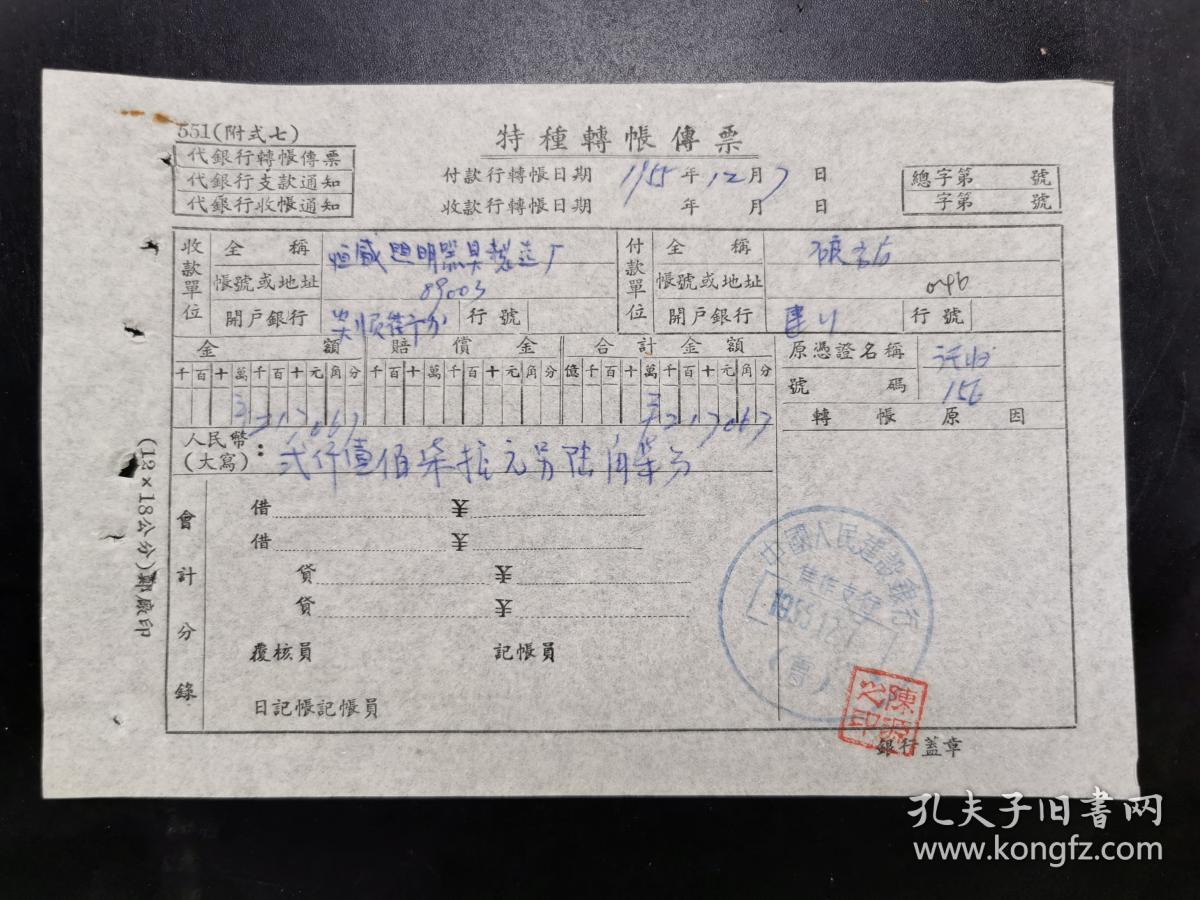 551(附式七)
特種轉帳傳票
代銀行轉帳傳票
代銀行支款通知
代銀行收帳通知
付款行轉帳日期 1955年12月7日
收款行轉帳日期 年 月 日
總字第 號
字第 號
收款單位 全稱 恒威照明器具製造厂
帳號或地址 89003
開戶銀行 行號
付款單位 全稱
帳號或地址 046
開戶銀行 建行 行號
金額 賠償金 合計金額
千百十萬千百十元角分 千百十萬千百十元角分 億千百十萬千百十元角分
217067 217067
原憑證名稱 託收
號碼 156
轉帳原因
人民幣(大寫): 弍仟壹佰柒拾元另陸角柒分
會計分錄
借 ¥
借 ¥
貸 ¥
貸 ¥
覆核員 記帳員
日記帳記帳員
中國人民建設銀行
焦作支行
1955.12.7
陳
之印
銀行蓋章
(12×18公分)
孔夫子旧书网
www.kongfz.com